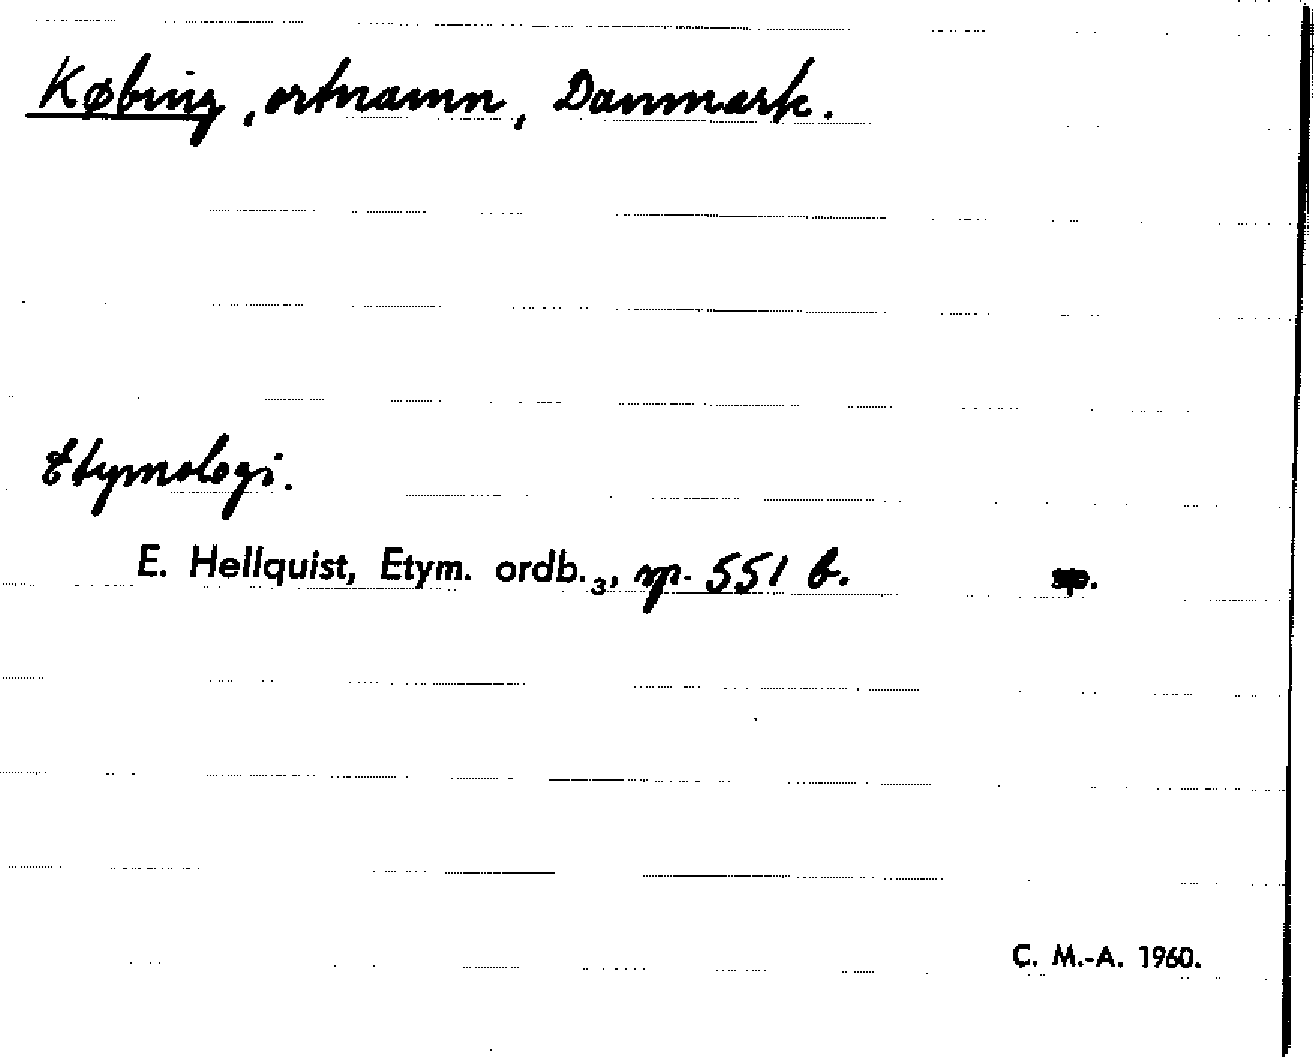 Købing, ortnamn, Danmark.
Etymologi.
E. Hellquist, Etym. ordb.₃, sp. 551 b. sp.
C. M.-A. 1960.